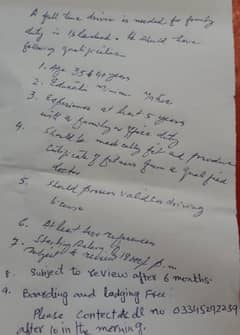 A full time driver is needed for family
duty in Islamabad. He should have
following qualification
1. Age 35 & 40 years
2. Education Minim. Metric
3. Experience at least 5 years
with a family or office duty
4. Should be medically fit and produce
Certificate of fitness from a qualified
doctor
5. Should possess valid car driving
license
6. At least two references
7. Starting Salary Rs
18000/ p.m.
8. Subject to review after 6 months.
9. Boarding and Lodging Free.
Please Contact at cell no
after 10 in the morning.